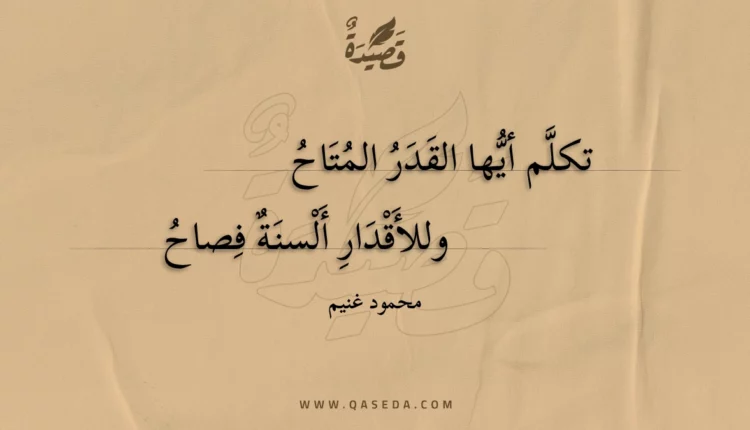 قَصِيدَةٌ
تكلَّم أيُّها القَدَرُ المُتَاحُ
وللأَقْدَارِ أَلْسنَةٌ فِصاحُ
محمود غنيم
WWW.QASEDA.COM